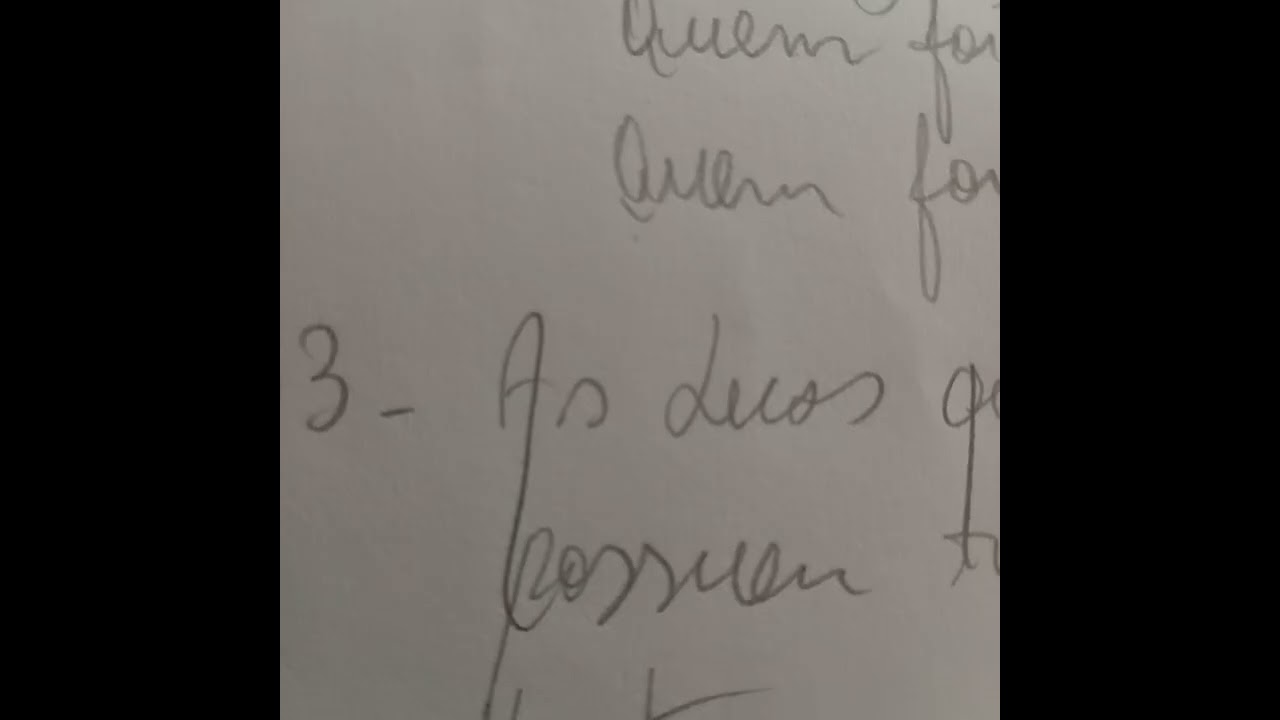 Quem foi
Quem foi
3- As duas
possuem